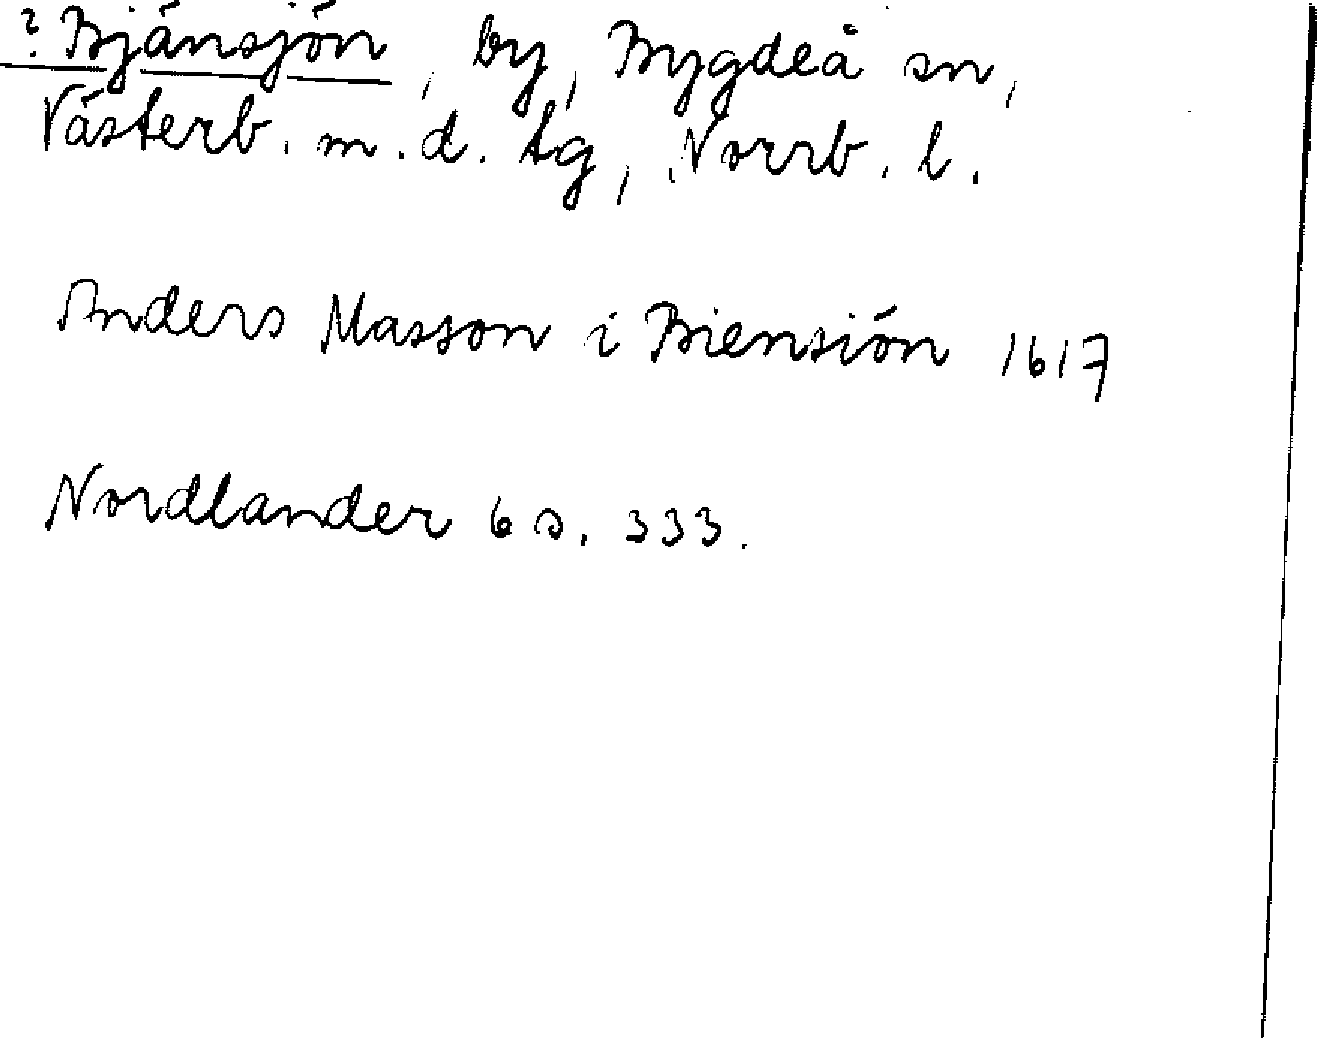 ? Bjänsjön, by, Bygdeå sn,
Västerb. m. d. tg, Norrb. l.
Anders Masson i Biensiön 1617
Nordlander 6 s. 333.